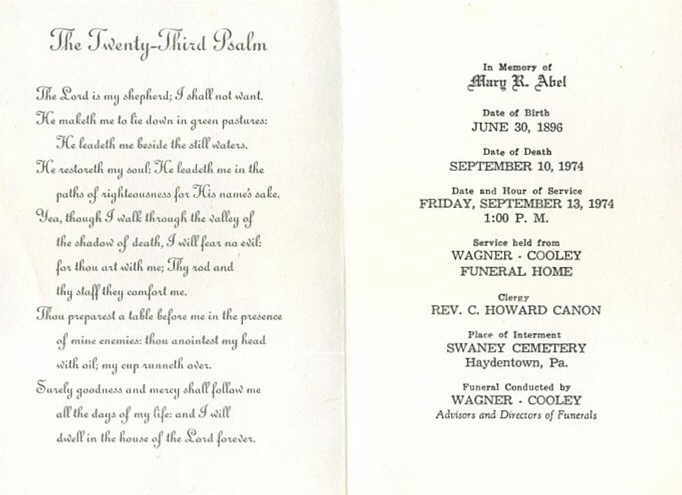 The Twenty-Third Psalm
The Lord is my shepherd; I shall not want.
He maketh me to lie down in green pastures:
He leadeth me beside the still waters.
He restoreth my soul: He leadeth me in the
paths of righteousness for His name's sake.
Yea, though I walk through the valley of
the shadow of death, I will fear no evil:
for thou art with me; Thy rod and
thy staff they comfort me.
Thou preparest a table before me in the presence
of mine enemies: thou anointest my head
with oil; my cup runneth over.
Surely goodness and mercy shall follow me
all the days of my life: and I will
dwell in the house of the Lord forever.
In Memory of
Mary R. Abel
Date of Birth
JUNE 30, 1896
Date of Death
SEPTEMBER 10, 1974
Date and Hour of Service
FRIDAY, SEPTEMBER 13, 1974
1:00 P. M.
Service held from
WAGNER - COOLEY
FUNERAL HOME
Clergy
REV. C. HOWARD CANON
Place of Interment
SWANEY CEMETERY
Haydentown, Pa.
Funeral Conducted by
WAGNER - COOLEY
Advisors and Directors of Funerals